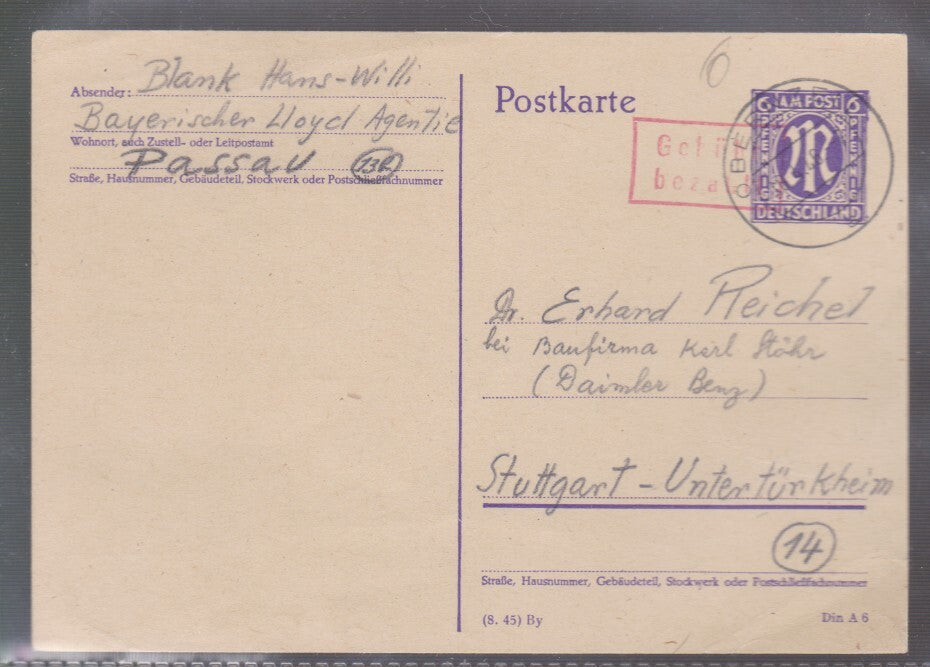 Absender: Blank Hans-Willi
Bayerischer Lloyd Agentie
Wohnort, auch Zustell- oder Leitpostamt
Passau
Straße, Hausnummer, Gebäudeteil, Stockwerk oder Postschließfachnummer
6
Postkarte
6 AM POST 6
PFENNIG
PFENNIG
M
DEUTSCHLAND
Dr. Erhard Reichel
bei Baufirma Karl Stöhr
(Daimler Benz)
Stuttgart - Untertürkheim
14
Straße, Hausnummer, Gebäudeteil, Stockwerk oder Postschließfachnummer
(8. 45) By
Din A 6